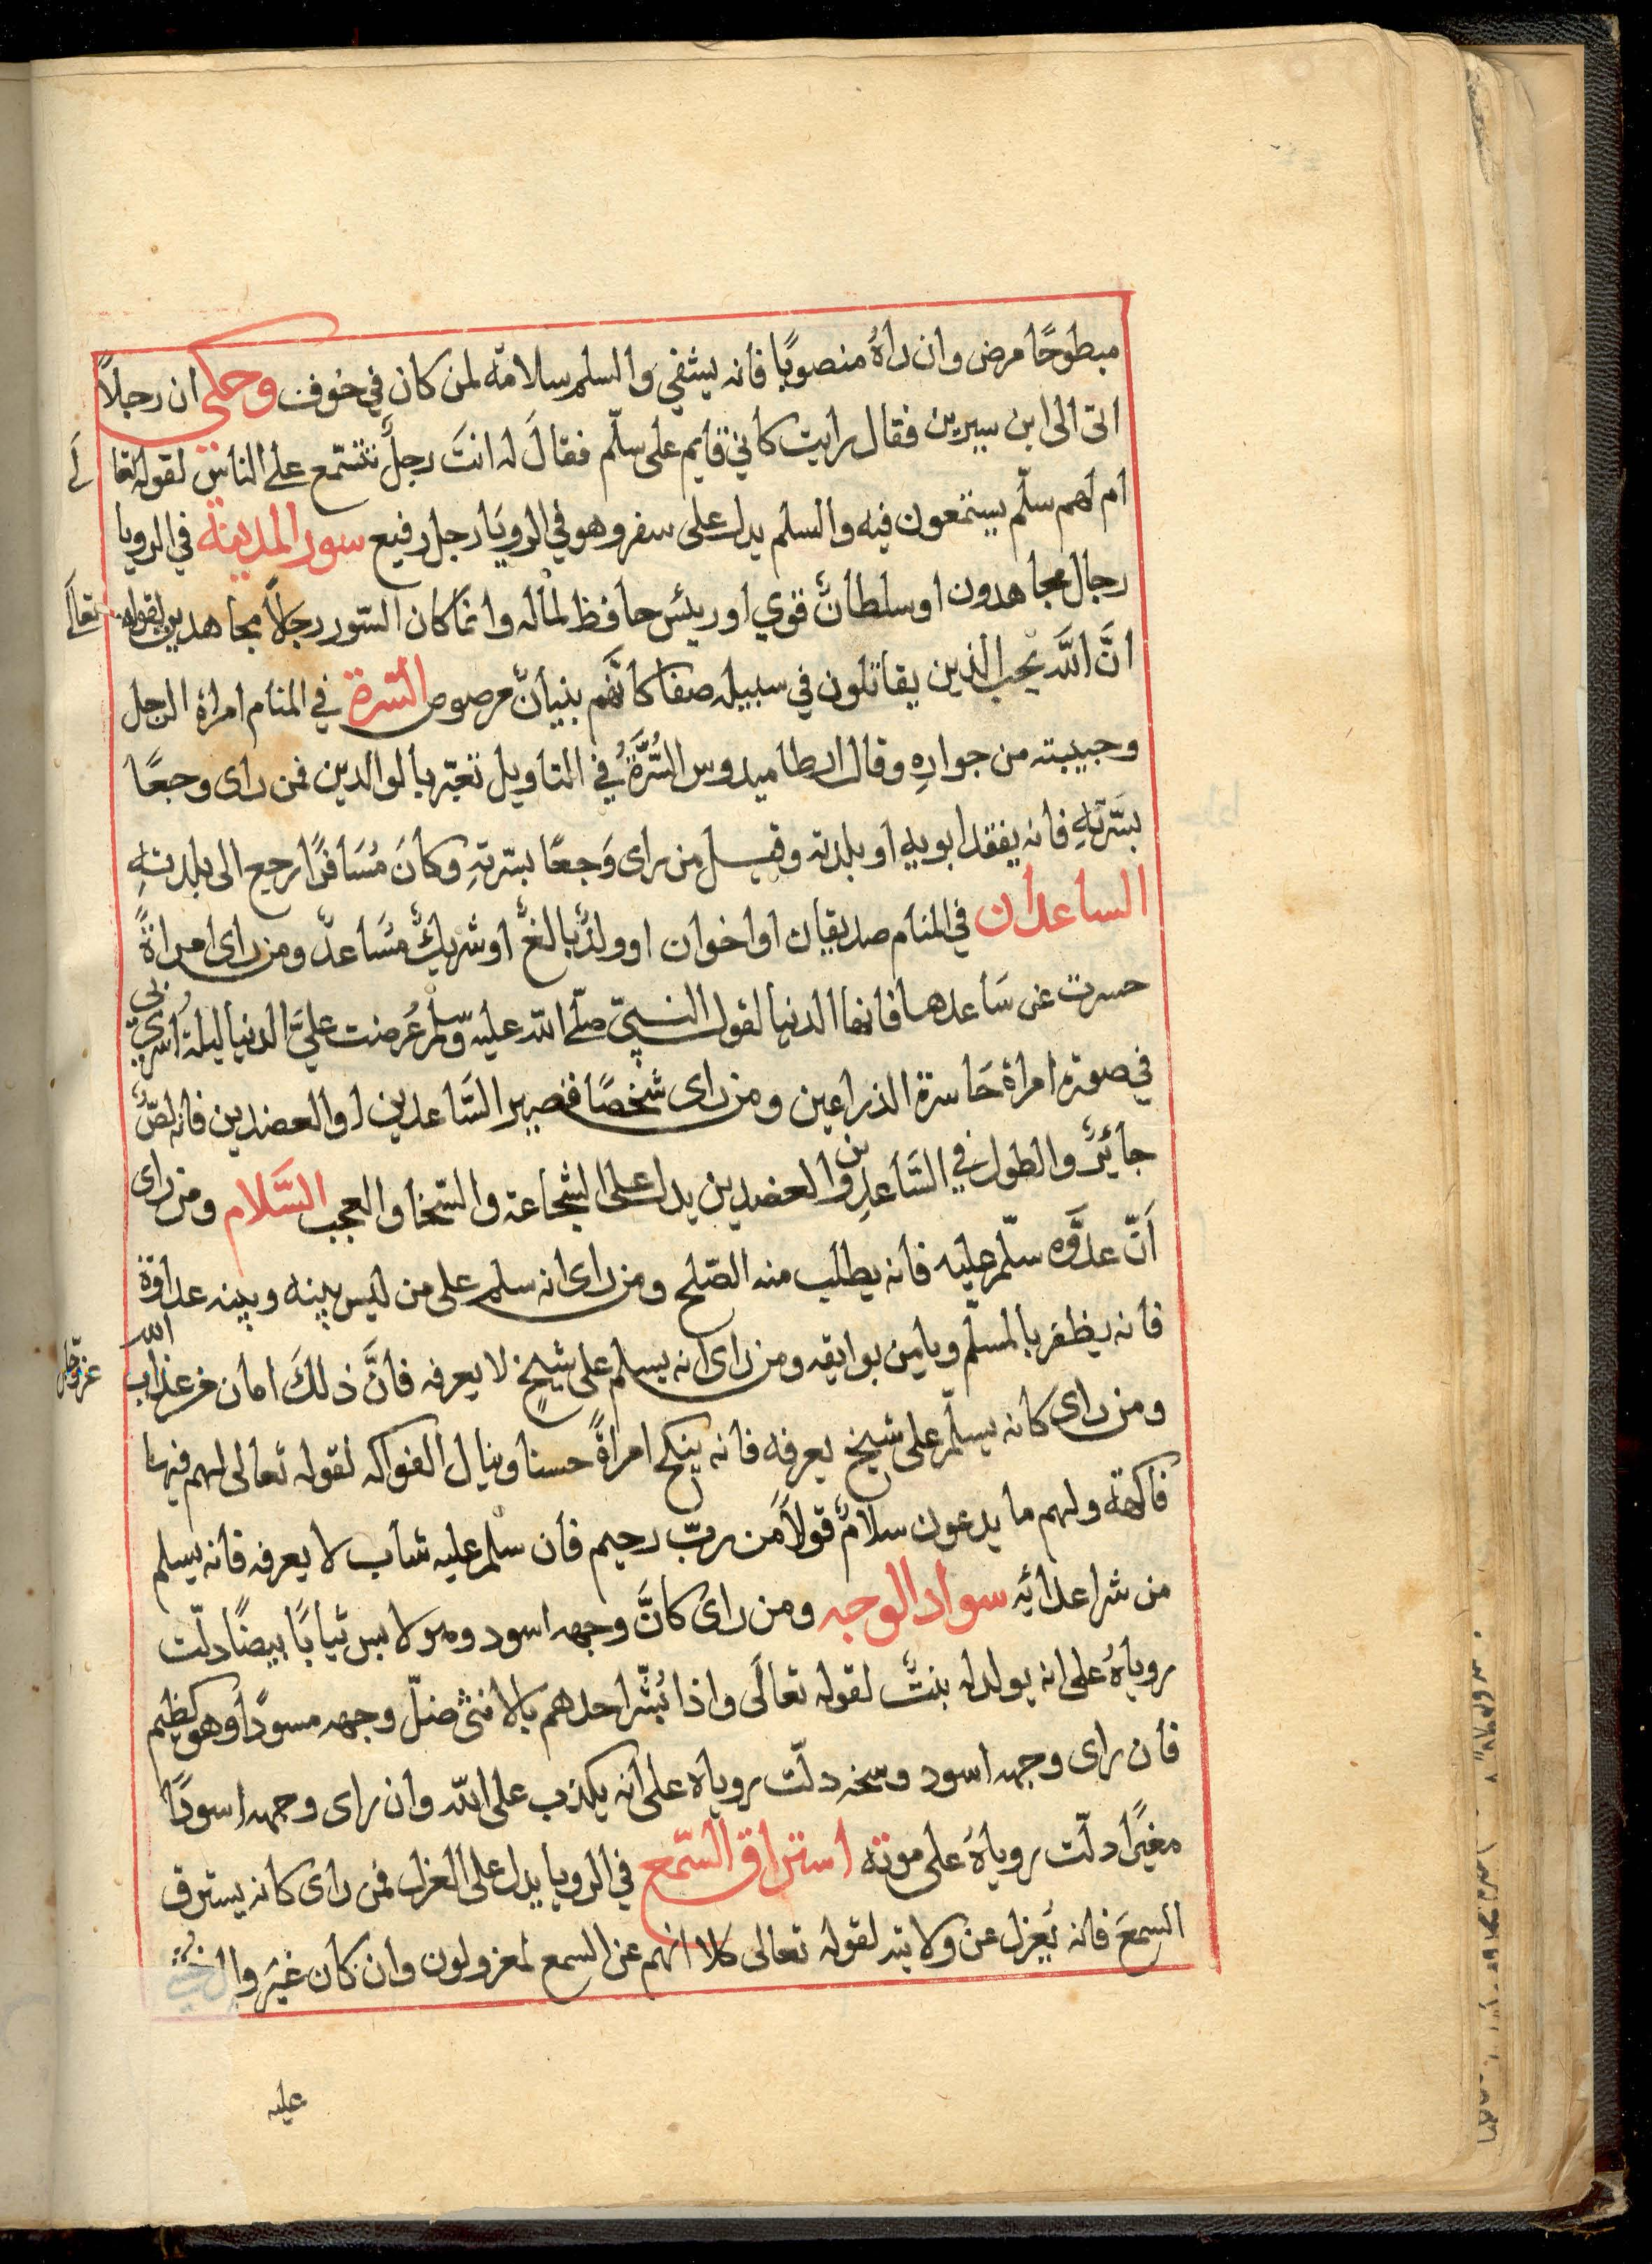 مبطوحًا مرض وان راهُ منصوبًا فانه يشفي والسلم سلامة لمن كان في خوف وحكى ان رجلاً
اتى الى ابن سيرين فقال رايت كاني قايم على سلّم فقالَ له انتَ رجلٌ تتسمّع على الناس لقوله تعالَى
ام لهم سلّم يستمعون فيه والسلم يدل على سفر وهو في الرويَا رجل رفيع سور المدينة في الرويا
رجال مجاهدون او سلطانٌ قوي او رييس حافظ لماله وانما كان السّور رجلاً مجاهدين لقوله تعالَى
انَّ اللَّه يحب الذين يقاتلون في سبيله صفا كانَّهم بنيانٌ مرصوص السّرة في المنام امراة الرجل
وحبيبته من جوارهِ وقال ارطاميدوس السُّرَّةُ في التاويل تعبّر بالوالدين فمن راى وجعًا
بسّرتهِ فانه يفقد ابويه او بلدته وقيل من راى وَجعًا بسّرتهِ وكانَ مُسَافرًا رجع الى بلدتهِ
الساعدان في المنام صديقان او اخوان او ولدٌ بالغٌ او شريكٌ مُسَاعدٌ ومن راى امراةً
حسرت عن سَاعدها فانها الدنيا لقول النبيّ صلّى اللّه عليه وسلّم عُرضت عليَّ الدنيا ليلة أُسْري بي
في صورة امراة حَاسرة الذراعين ومن راى شخصًا قصير السَّاعدين او العضدين فانه لصٌّ
جائرٌ والطول في السَّاعدين والعضدين يدل على الشجاعة والسّخا والعجب السَّلام ومن راى
اَنّ عدوَّه سلّم عليه فانه يطلب منه الصّلح ومن راى انه سلم على من ليس بينه وبينه عداوة
فانه يظفر بالمسلّم ويامن بوايقه ومن راى انه يسلم على شيخٍ لا يعرفه فانَّ ذلكَ امان من عذاب الله عزّوجل
ومن راى كانه يسلّم على شيخ يعرفه فانه ينكح امراةً حسنا وينال الفواكه لقوله تعالى لهم فيها
فاكهة ولهم ما يدعون سلامٌ قولاً من ربّ رحيم فان سلّم عليه شاب لا يعرفه فانه يسلم
من شر اعدائه سواد الوجه ومن راى كانَّ وجهه اسود وهو لابس ثيابًا بيضًا دلّت
روياهُ على انه يولد له بنتٌ لقوله تعالَى واذا بُشّر احدهم بالانثى ضلّ وجهه مسودًّا وهو كظيم
فان راى وجهه اسود وسخه دلّت روياه على انه يكذب على اللّه وان راى وجهه اسودًا
مغبرًا دلّت روياهُ على موته استراق السّمع في الرويا يدل على العزل فمن راى كانه يسترق
السمعَ فانه يُعزل عن ولايته لقوله تعالى كلا انهم عن السمع لمعزولون وان كان غير وال خُشي
عليه